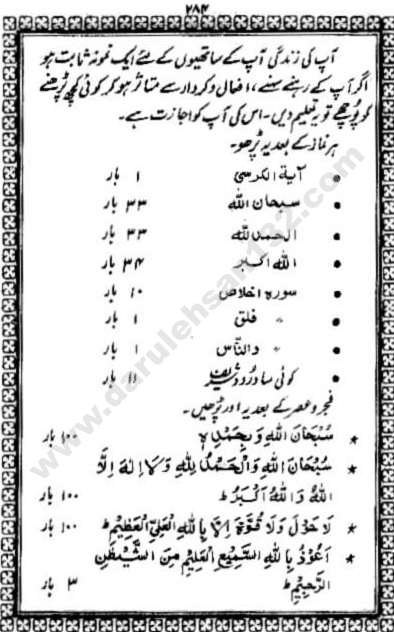 ۲۸۴
آپ کی زندگی آپ کے ساتھیوں کے لئے ایک نمونہ ثابت ہو
اگر آپ کے رہنے سہنے، افعال و کردار سے متاثر ہو کر کوئی کچھ پڑھنے
کو پُوچھے تو یہ تعلیم دیں۔ اس کی آپ کو اجازت ہے۔
ہر نماز کے بعد یہ پڑھو۔
• آیة الکرسی ۱ بار
• سبحان الله ۳۳ بار
• الحمد لله ۳۳ بار
• الله اکبر ۳۴ بار
• سورہ اخلاص ۱۰ بار
• 〃 فلق ۱ بار
• 〃 والنّاس ۱ بار
• کوئی سا درُود شریف ۱۱ بار
فجر و عصر کے بعد یہ اور پڑھیں۔
★ سُبْحَانَ اللهِ وَبِحَمْدِهٖ ۱۰۰ بار
★ سُبْحَانَ اللهِ وَالْحَمْدُ لِلهِ وَلَا اِلٰهَ اِلَّا
اللهُ وَاللهُ اَكْبَرُ ط ۱۰۰ بار
★ لَا حَوْلَ وَلَا قُوَّةَ اِلَّا بِاللهِ الْعَلِيِّ الْعَظِيْمِ ط ۱۰۰ بار
★ اَعُوْذُ بِاللهِ السَّمِيْعِ الْعَلِيْمِ مِنَ الشَّيْطٰنِ
الرَّجِيْمِ ط ۳ بار
www.darulehsan132.com